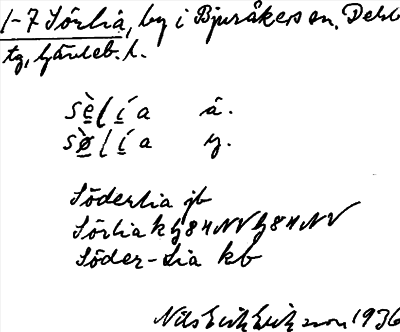 1-7 Sörlia, by i Bjuråkers sn, Delsb
tg, Gävleb. l.
sèlía ä.
sø̀lía y.
Söderlia jb
Sörlia k G84NV G84NV
Söder-Lia kb
Nils Erik Eriksson 1936